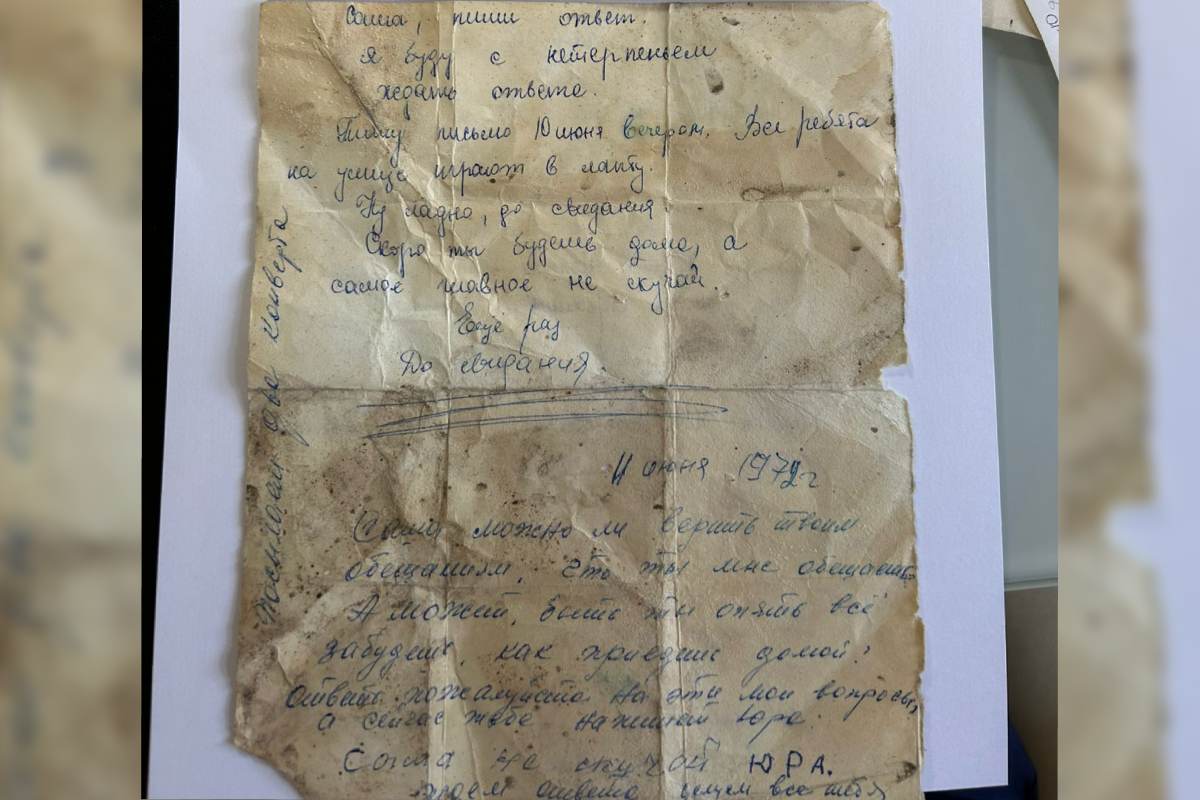 Саша, пиши ответ.
я буду с нетерпеньем
ждать ответа.
Пишу письмо 10 июня вечером. Все ребята
на улице играют в лапту.
Ну ладно, до свидания
Скоро ты будешь дома, а
самое главное не скучай.
Ещё раз
До свидания.
посылаем два конверта
11 июня 1972 г
Саша можно ли верить твоим
обещаниям, что ты мне обещаешь
А может, быть ты опять всё
забудешь, как приедешь домой?
Ответь пожалуйста на эти мои вопросы,
а сейчас тебе напишет Юра.
Саша не скучай ЮРА.
ждем ответа целуем все тебя